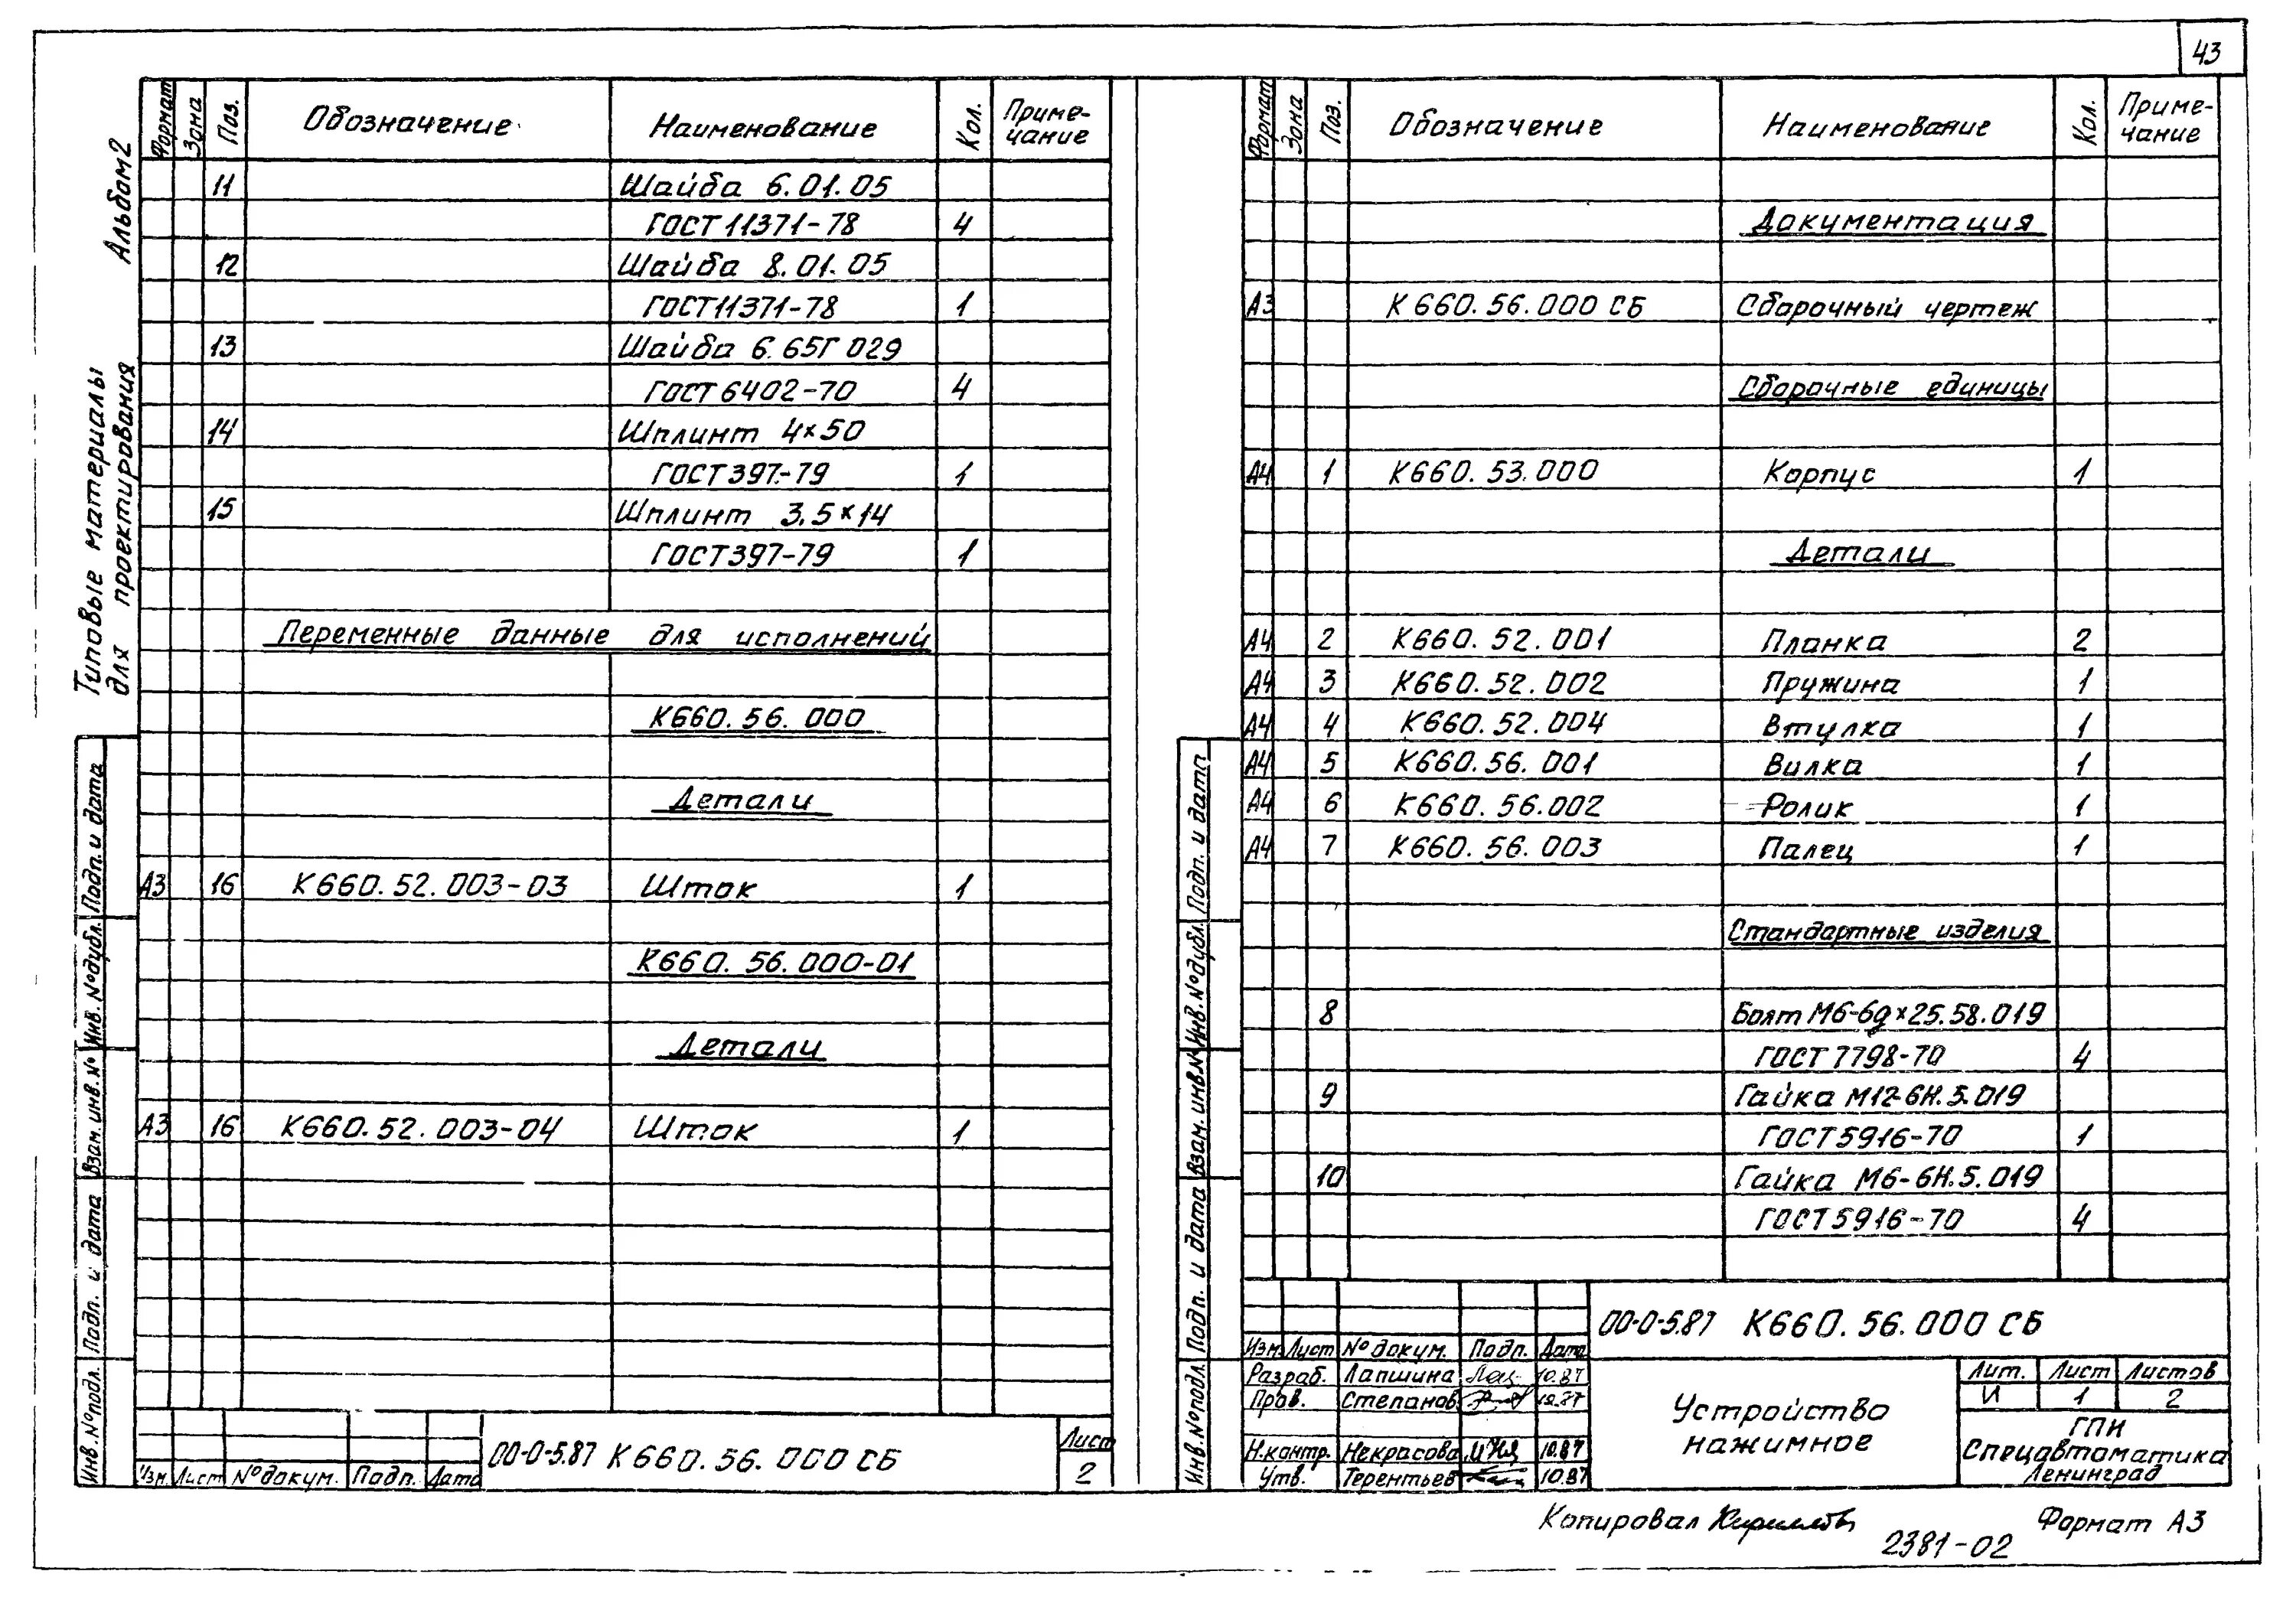 43
Альбом 2
Типовые материалы
для проектирования
Формат Зона Поз. Обозначение Наименование Кол. Приме-
чание
11 Шайба 6.01.05
ГОСТ 11371-78 4
12 Шайба 8.01.05
ГОСТ 11371-78 1
13 Шайба 6.65Г 029
ГОСТ 6402-70 4
14 Шплинт 4×50
ГОСТ 397-79 1
15 Шплинт 3,5×14
ГОСТ 397-79 1
Переменные данные для исполнений
К660.56.000
Детали
А3 16 К660.52.003-03 Шток 1
К660.56.000-01
Детали
А3 16 К660.52.003-04 Шток 1
Подп. и дата
Инв. № дубл.
Взам. инв. №
Подп. и дата
Инв. № подл.
Изм. Лист № докум. Подп. Дата
00-0-5.87 К660.56.000 СБ
Лист
2
Формат Зона Поз. Обозначение Наименование Кол. Приме-
чание
Документация
А3 К660.56.000 СБ Сборочный чертеж
Сборочные единицы
А4 1 К660.53.000 Корпус 1
Детали
А4 2 К660.52.001 Планка 2
А4 3 К660.52.002 Пружина 1
А4 4 К660.52.004 Втулка 1
А4 5 К660.56.001 Вилка 1
А4 6 К660.56.002 Ролик 1
А4 7 К660.56.003 Палец 1
Стандартные изделия
8 Болт М6-6g×25.58.019
ГОСТ 7798-70 4
9 Гайка М12-6Н.5.019
ГОСТ 5916-70 1
10 Гайка М6-6Н.5.019
ГОСТ 5916-70 4
Подп. и дата
Инв. № дубл.
Взам. инв. №
Подп. и дата
Инв. № подл.
00-0-5.87 К660.56.000 СБ
Изм. Лист № докум. Подп. Дата
Разраб. Лапшина 10.87
Пров. Степанов 10.87
Н.контр. Некрасова 10.87
Утв. Терентьев 10.87
Устройство
нажимное
Лит. Лист Листов
И 1 2
ГПИ
Спецавтоматика
Ленинград
Копировал
Формат А3
2381-02